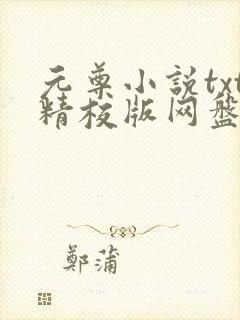 元尊小説txt
精校版网盘
鄭蒲